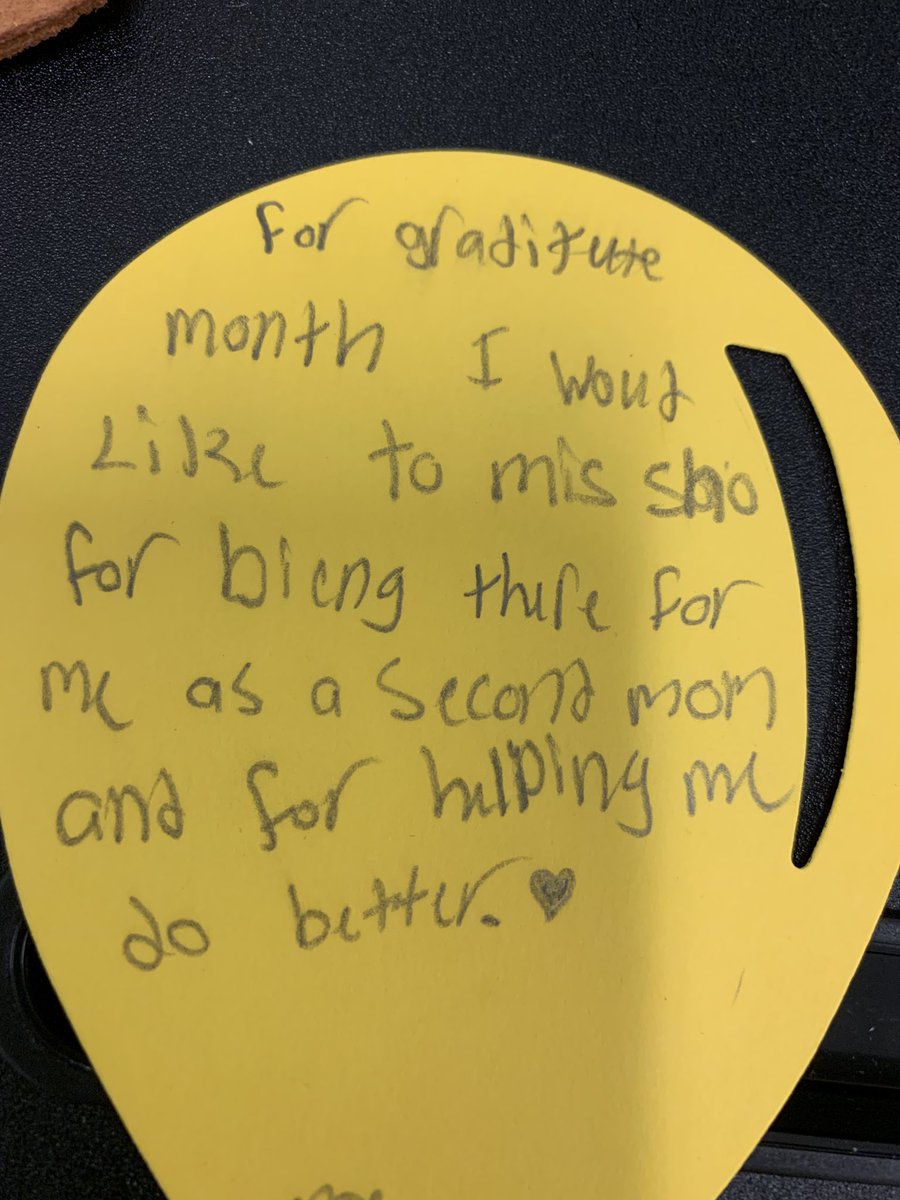 For graditute
month I woud
Like to mis sbio
for bieng there for
me as a second mom
and for helping me
do better. ♥